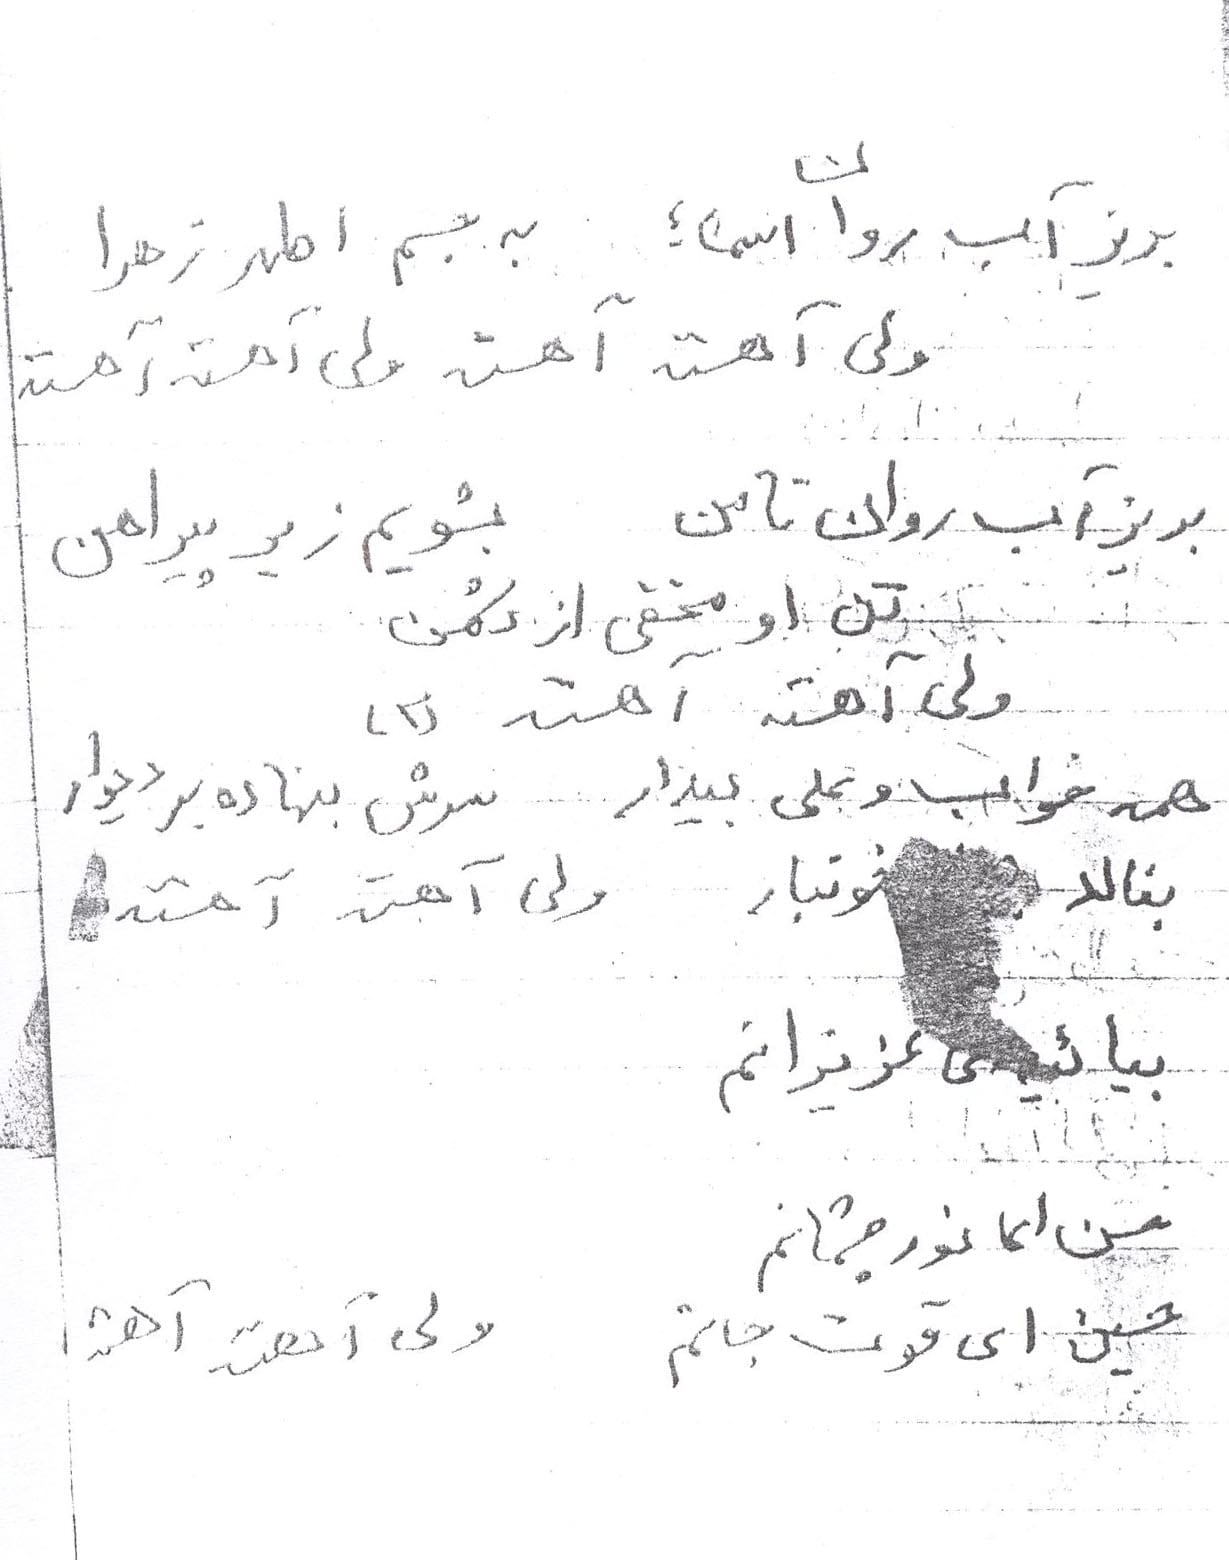 بریز آب روان اسماء به جسم اطهر زهرا
ولی آهسته آهسته ولی آهسته آهسته
بریز آب روان تا من بشویم زیر پیراهن
تن او مخفی از دشمن
ولی آهسته آهسته (۲)
همه خواب و علی بیدار سرش بنهاده بر دیوار
بنالد خونبار ولی آهسته آهسته
بیائید ی عزیزانم
حسن ای نور چشمانم
حسین ای قوت جانم ولی آهسته آهسته